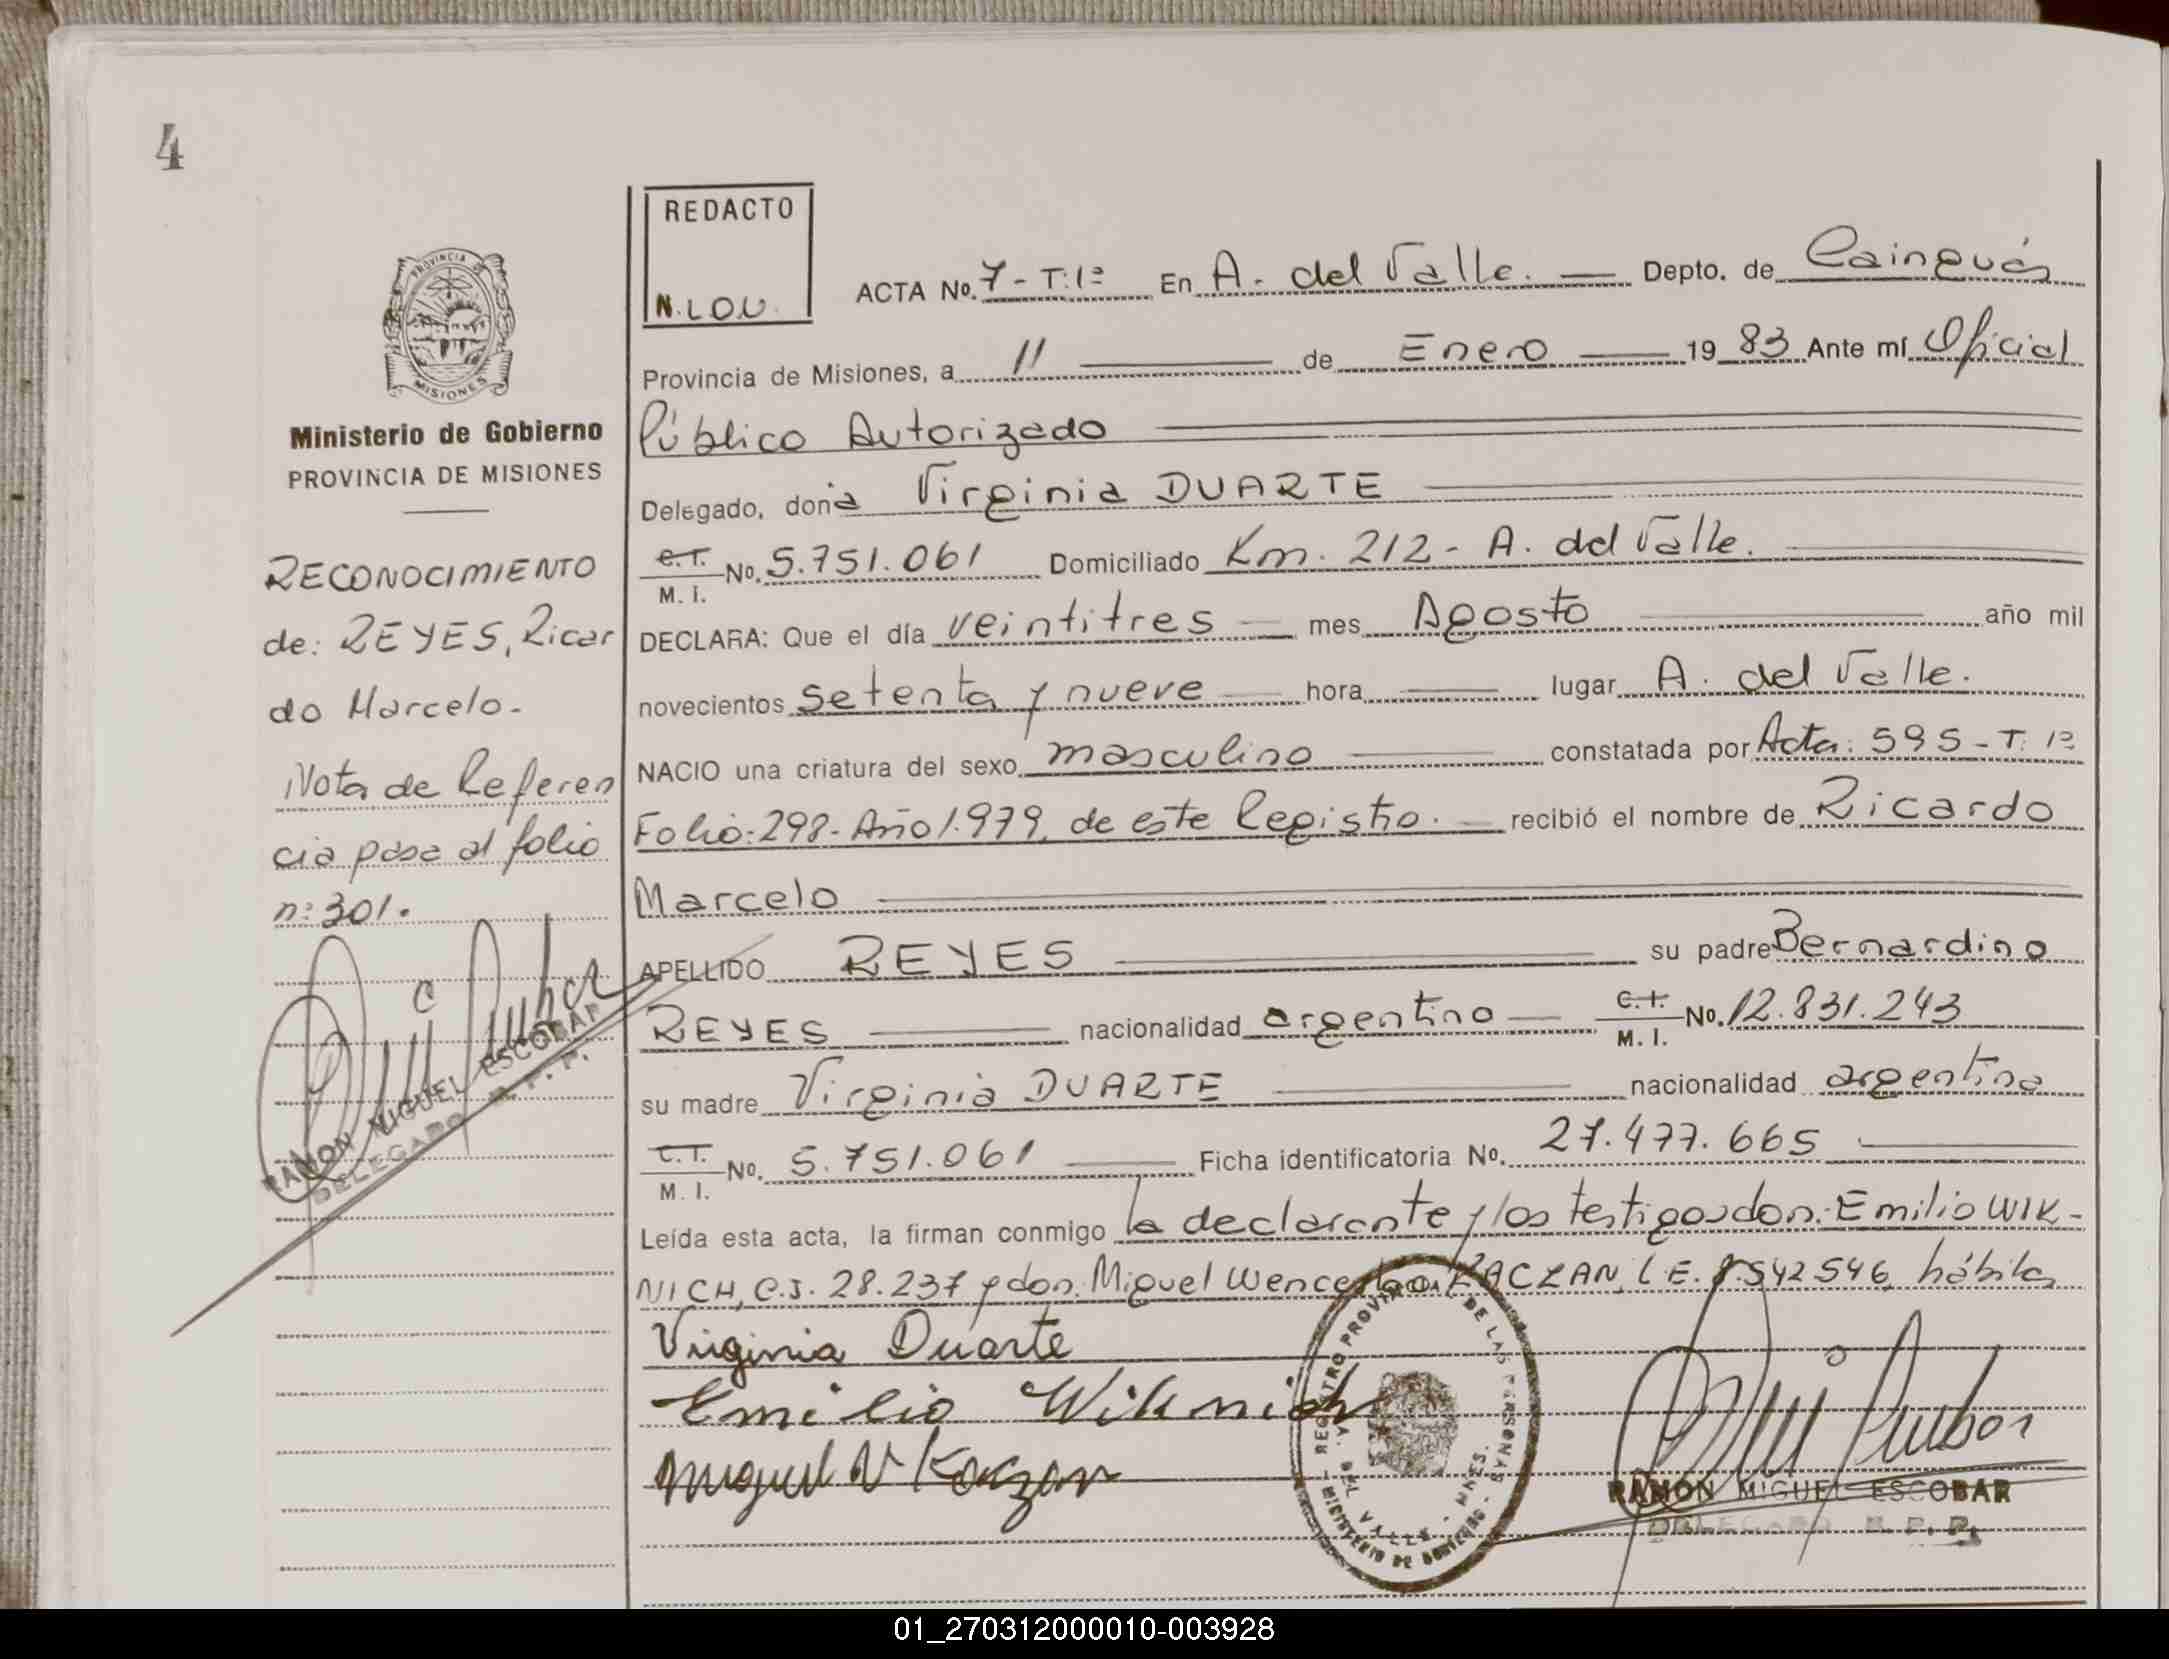 4
REDACTO
N. L.O.U.
ACTA No. 7 - T: 1º En A. del Valle. Depto. de Cainguás
Provincia de Misiones, a 11 de Enero 19 83 Ante mí Oficial
Público Autorizado
Delegado, doña Virginia DUARTE
C.I. M. I. No. 5.751.061 Domiciliado Km. 212 - A. del Valle.
DECLARA: Que el día veintitres mes Agosto año mil
novecientos setenta y nueve hora lugar A. del Valle.
NACIO una criatura del sexo masculino constatada por Acta: 595 - T: 1º
Folio: 298 - Año 1.979, de este Registro. recibió el nombre de Ricardo
Marcelo
APELLIDO REYES su padre Bernardino
REYES nacionalidad argentino C.I. M. I. No. 12.831.243
su madre Virginia DUARTE nacionalidad argentina
C.I. M. I. No. 5.751.061 Ficha identificatoria No. 27.477.665
Leída esta acta, la firman conmigo la declarante y los testigos don: Emilio WIK-
NICH, C.I. 28.237 y don: Miguel Wenceslao KACZAN, L.E. 542546, hábiles
Virginia Duarte
Emilio Wiknich
Miguel W Kaczan
REGISTRO PROVINCIAL DE LAS PERSONAS
A. DEL VALLE - MNES.
MINISTERIO DE GOBIERNO
RAMON MIGUEL ESCOBAR
DELEGADO R. P. P.
PROVINCIA DE
MISIONES
Ministerio de Gobierno
PROVINCIA DE MISIONES
RECONOCIMIENTO
de: REYES, Ricar
do Marcelo.-
Nota de Referen
cia pasa al folio
nº 301.
RAMON MIGUEL ESCOBAR
DELEGADO R. P. P.
01_270312000010-003928